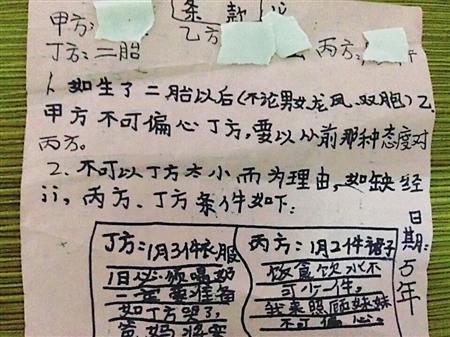 条款
甲方:
乙方
丙方:
丁方:二胎
1、如生了二胎以后(不论男女龙凤、双胞)乙
甲方不可偏心丁方,要以从前那种态度对
丙方。
2、不可以丁方太小而为理由,如缺经
济,丙方、丁方条件如下:
丁方:1月3件衣服
1日必须喝奶
一定要准备
如丁方哭了,
爸、妈将要
丙方:1月2件裙子
饭食饮水不
可少一件。
我来照顾妹妹
不可偏心。
日期:5年